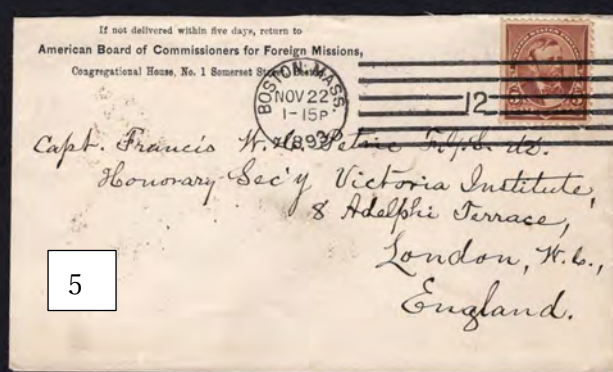 If not delivered within five days, return to
American Board of Commissioners for Foreign Missions,
Congregational House, No. 1 Somerset
BOSTON, MASS.
NOV 22
1-15P
1893
12
Capt. Francis W. H. Petrie
Honorary Sec'y Victoria Institute,
8 Adelphi Terrace,
London, W.C.,
England.
5